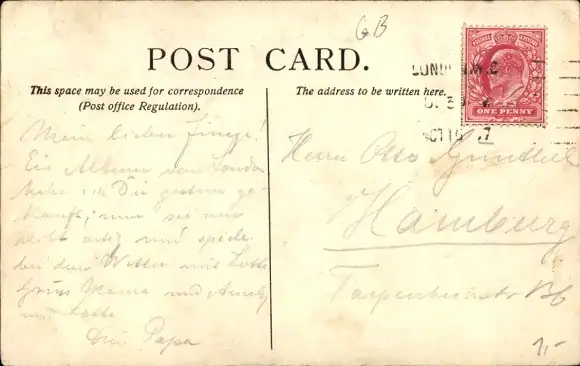 GB
POST CARD.
This space may be used for correspondence
(Post office Regulation).
The address to be written here.
LOND N.W.
OCT 16 7
POSTAGE REVENUE
ONE PENNY
Mein lieber Junge!
Ein Album von London
habe ich Dir gestern ge-
kauft; nun sei nur
recht artig und spiele
bei dem Wetter mit Lotte
Grüss Mama und
und Lotte
Dein Papa
Herrn Otto
Hamburg
Tarpenbeckstr
1,-